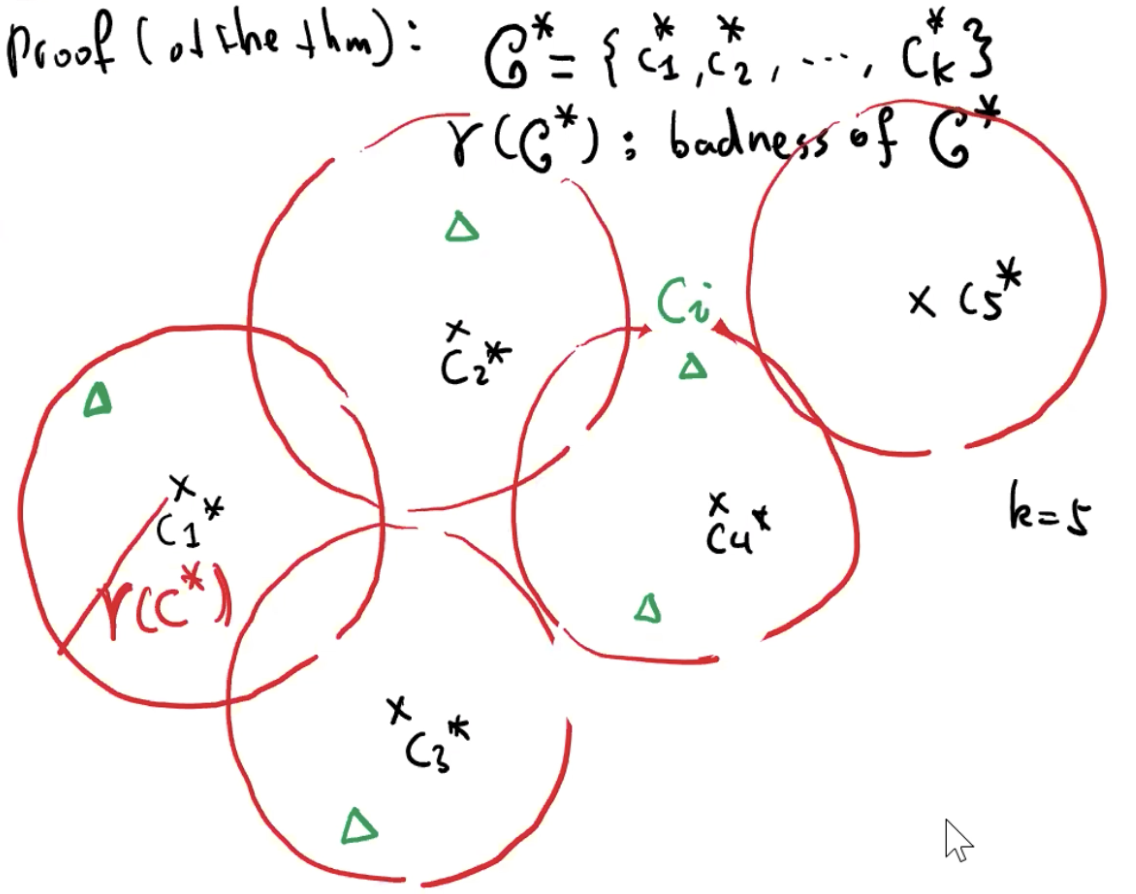 Proof (of the thm): C* = { c1*, c2*, ..., ck* }
r(C*) : badness of C*
Ci
x C5*
x
C2*
x
C1*
x
C4*
k=5
r(C*)
x
C3*